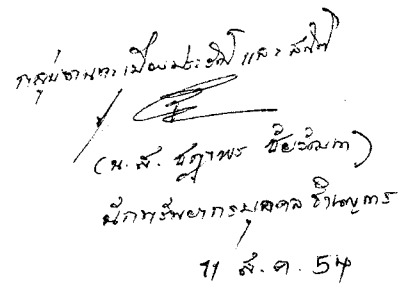 กลุ่มงานทะเบียนประวัติและสถิติ
(น.ส. ชฎาพร ชัยวัฒนา)
นักทรัพยากรบุคคลชำนาญการ
11 ส.ค. 54